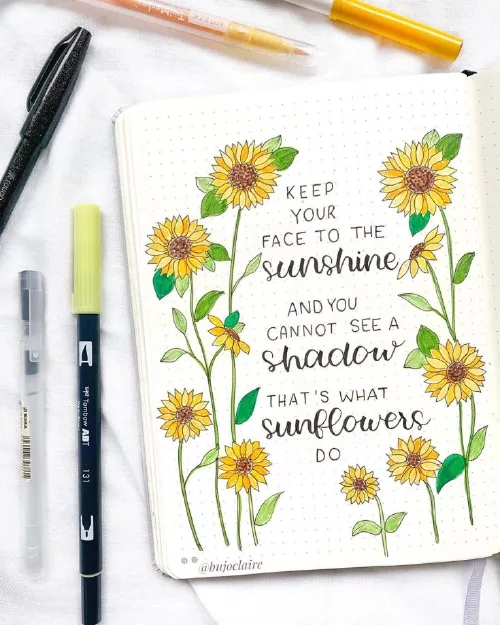 KEEP
YOUR
FACE TO THE
sunshine
AND YOU
CANNOT SEE A
shadow
THAT'S WHAT
sunflowers
DO
@bujoclaire
Tombow
ABT
131